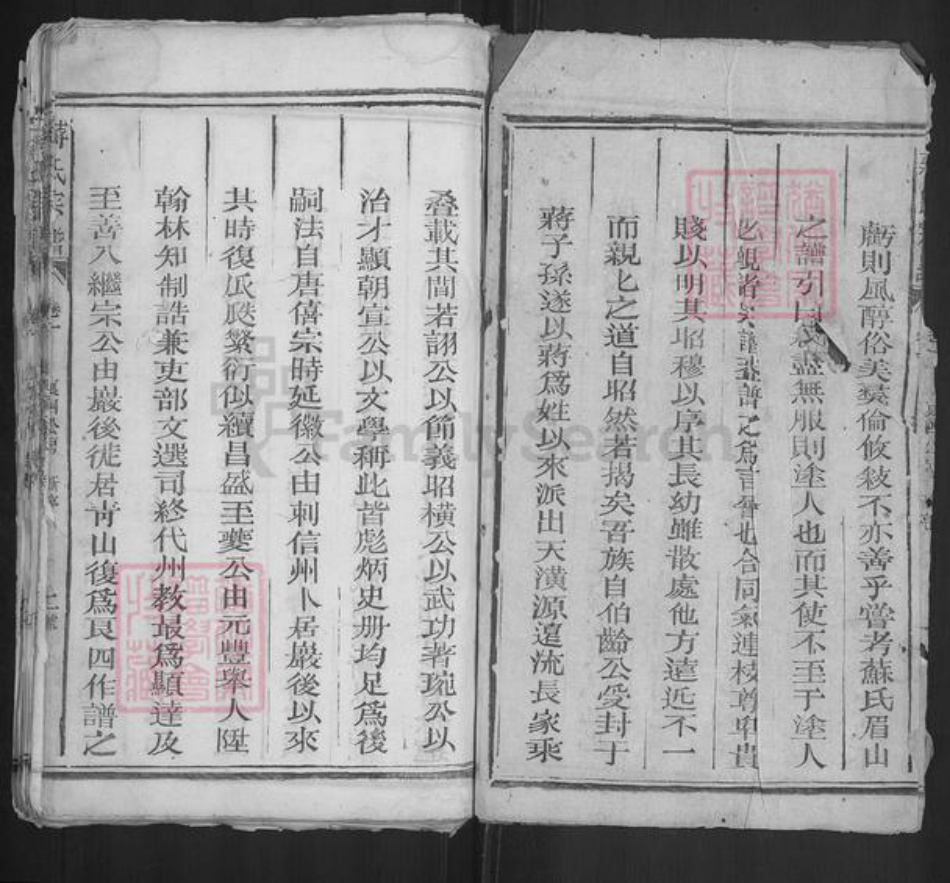 虧則風醇俗美彝倫攸敍不亦善乎嘗考蘇氏眉山
之譜引曰 盡無服則塗人也而其使不至于塗人
也合同氣連枝尊卑貴
賤以明其昭穆以序其長幼雖散處他方遠近不一
而親匕之道自昭然若揭矣吾族自伯齡公受封于
蔣子孫遂以蔣爲姓以來派出天潢源遠流長家乘
叠載其間若詡公以節義昭橫公以武功著琬公以
治才顯朝宣公以文學稱此皆彪炳史册均足爲後
嗣法自唐僖宗時延徽公由刺信州卜居巖後以來
其時復瓜瓞繁衍似續昌盛至夔公由元豐舉人陞
翰林知制誥兼吏部文選司終代州教最爲顯達及
至善八繼宗公由巖後徙居靑山復爲艮四作譜之
蔣氏宗譜
卷一
FamilySearch